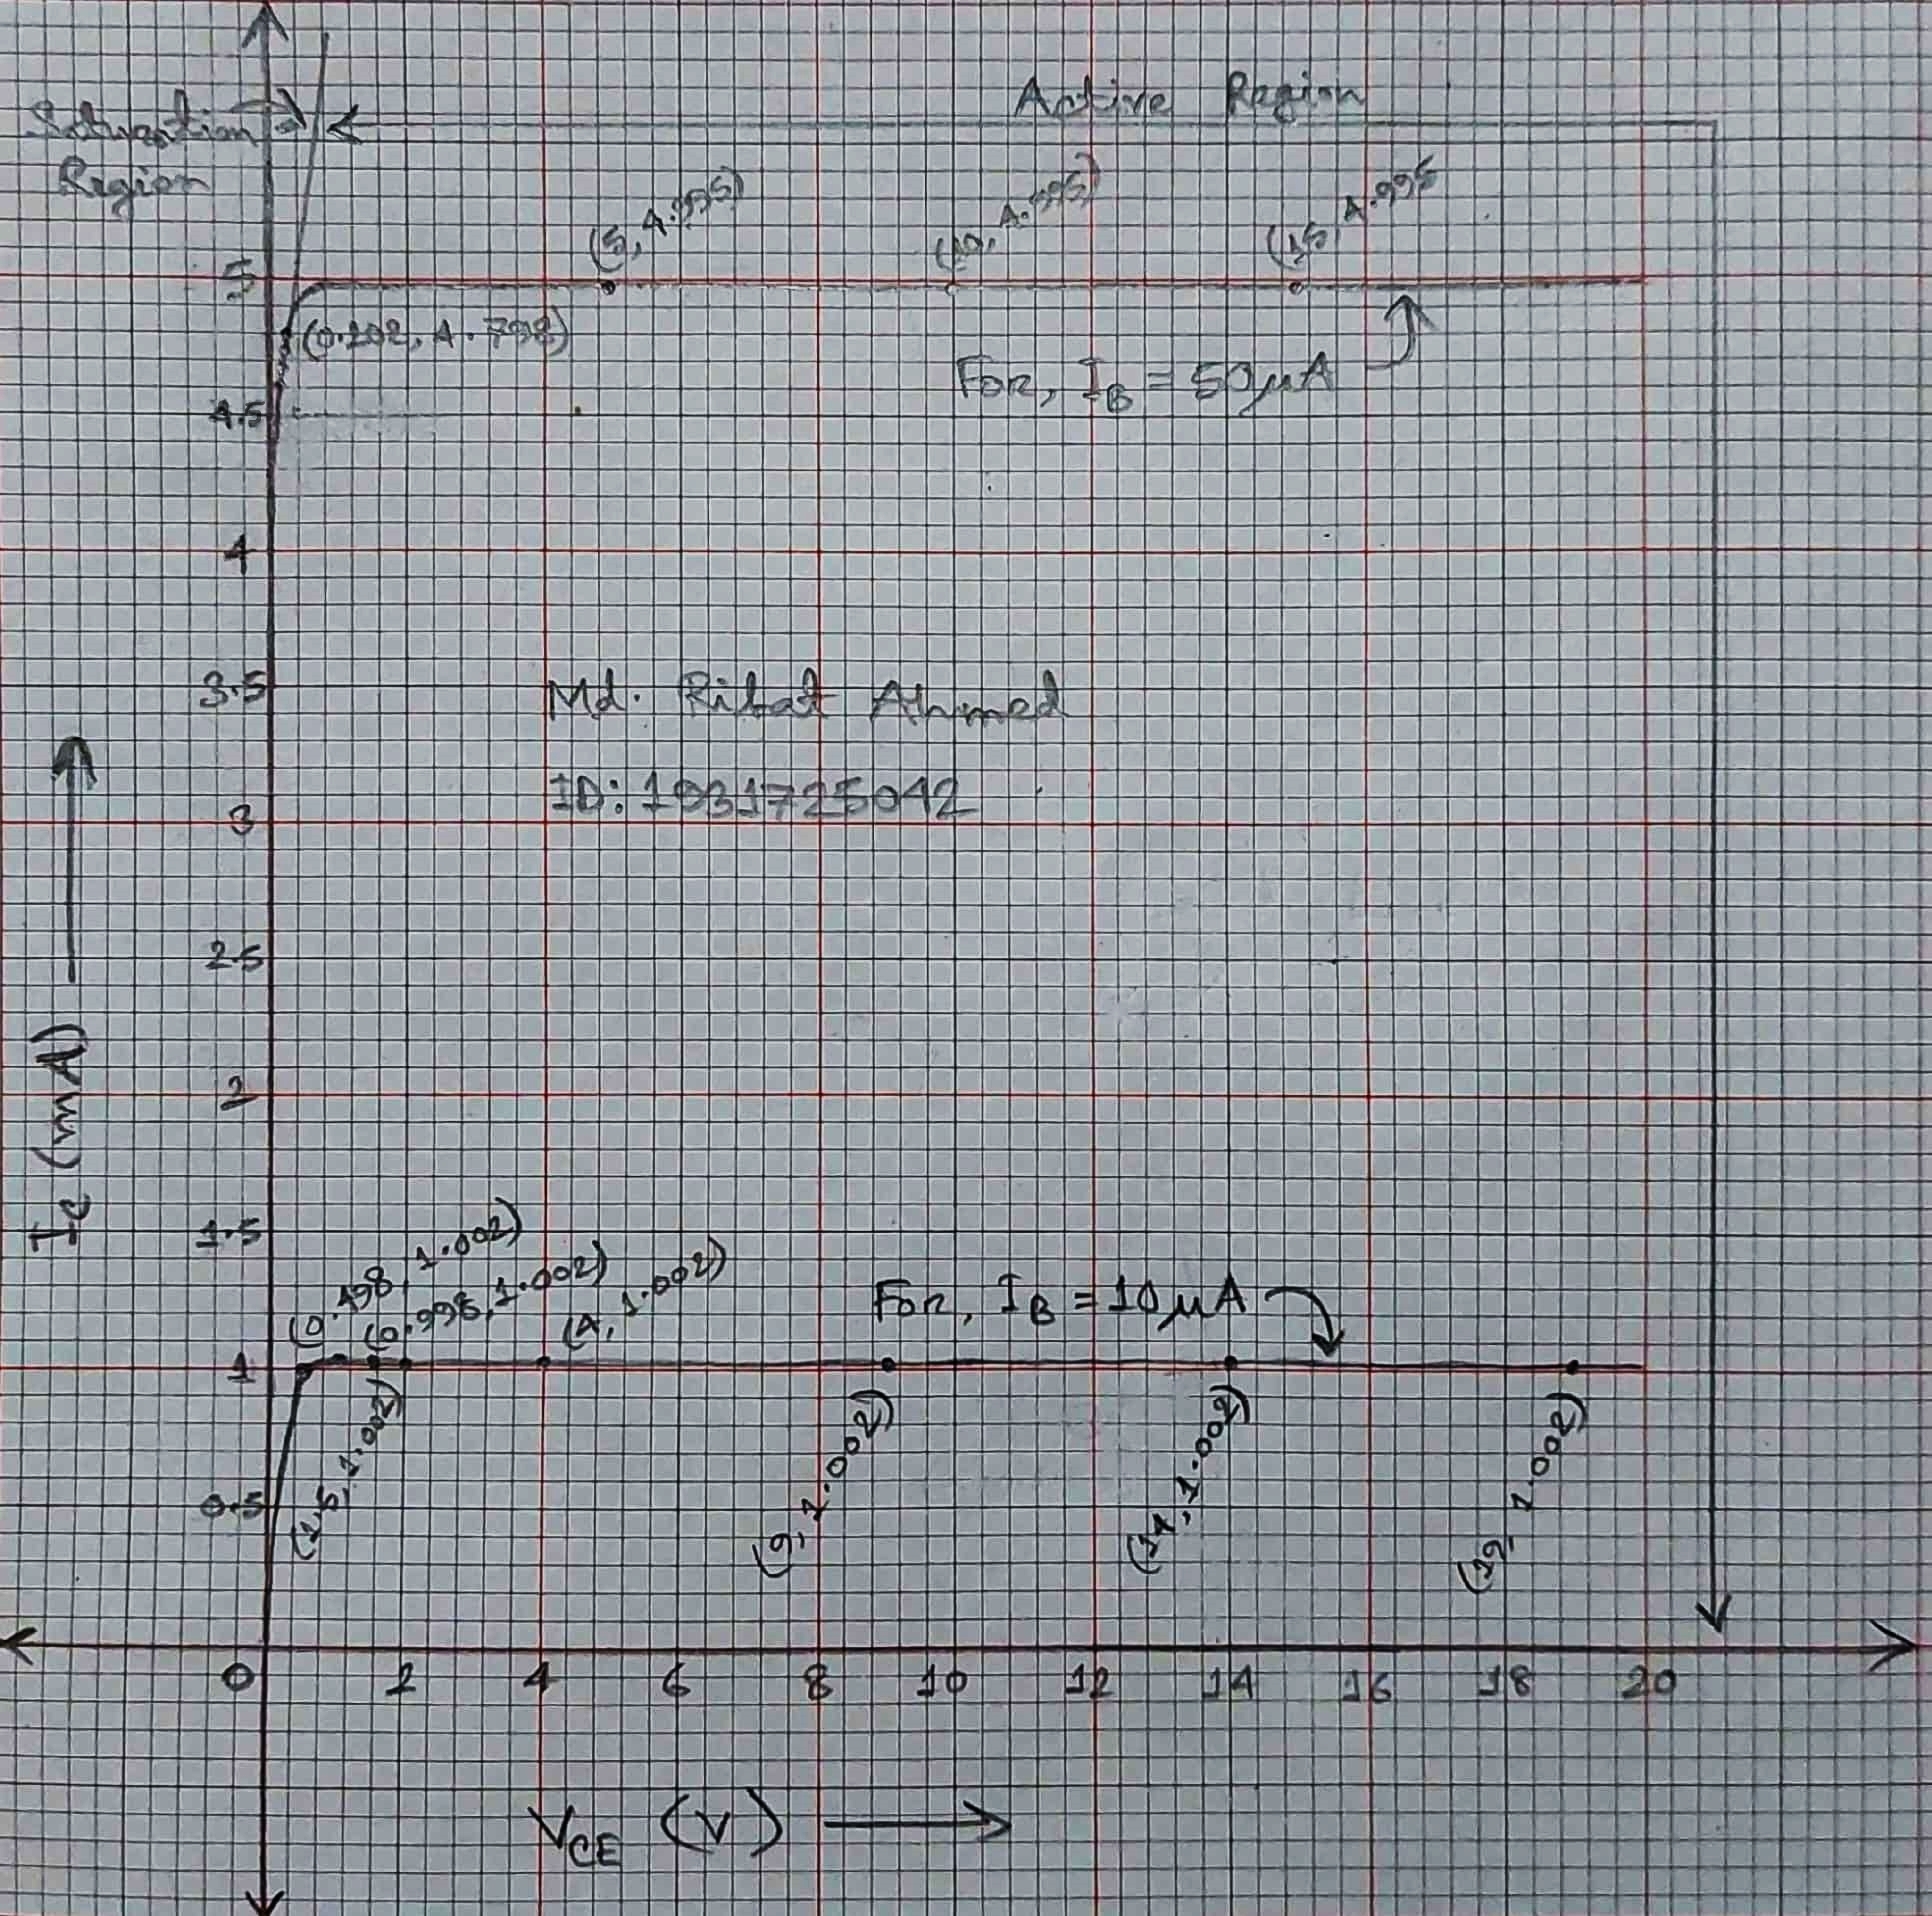 Active Region
Saturation
Region
(5, 4.995)
(10, 4.995)
(15, 4.995
5
(0.202, 4.798)
For, IB = 50μA
4.5
4
3.5
Md. Rifat Ahmed
ID: 1931725042
3
2.5
2
Ic (mA)
1.5
(0.498, 1.002)
(0.998, 1.002)
(4, 1.002)
For, IB = 10μA
1
(1.5, 1.002)
(9, 1.002)
(14, 1.002)
(19, 1.002)
0.5
0 2 4 6 8 10 12 14 16 18 20
VCE (V)